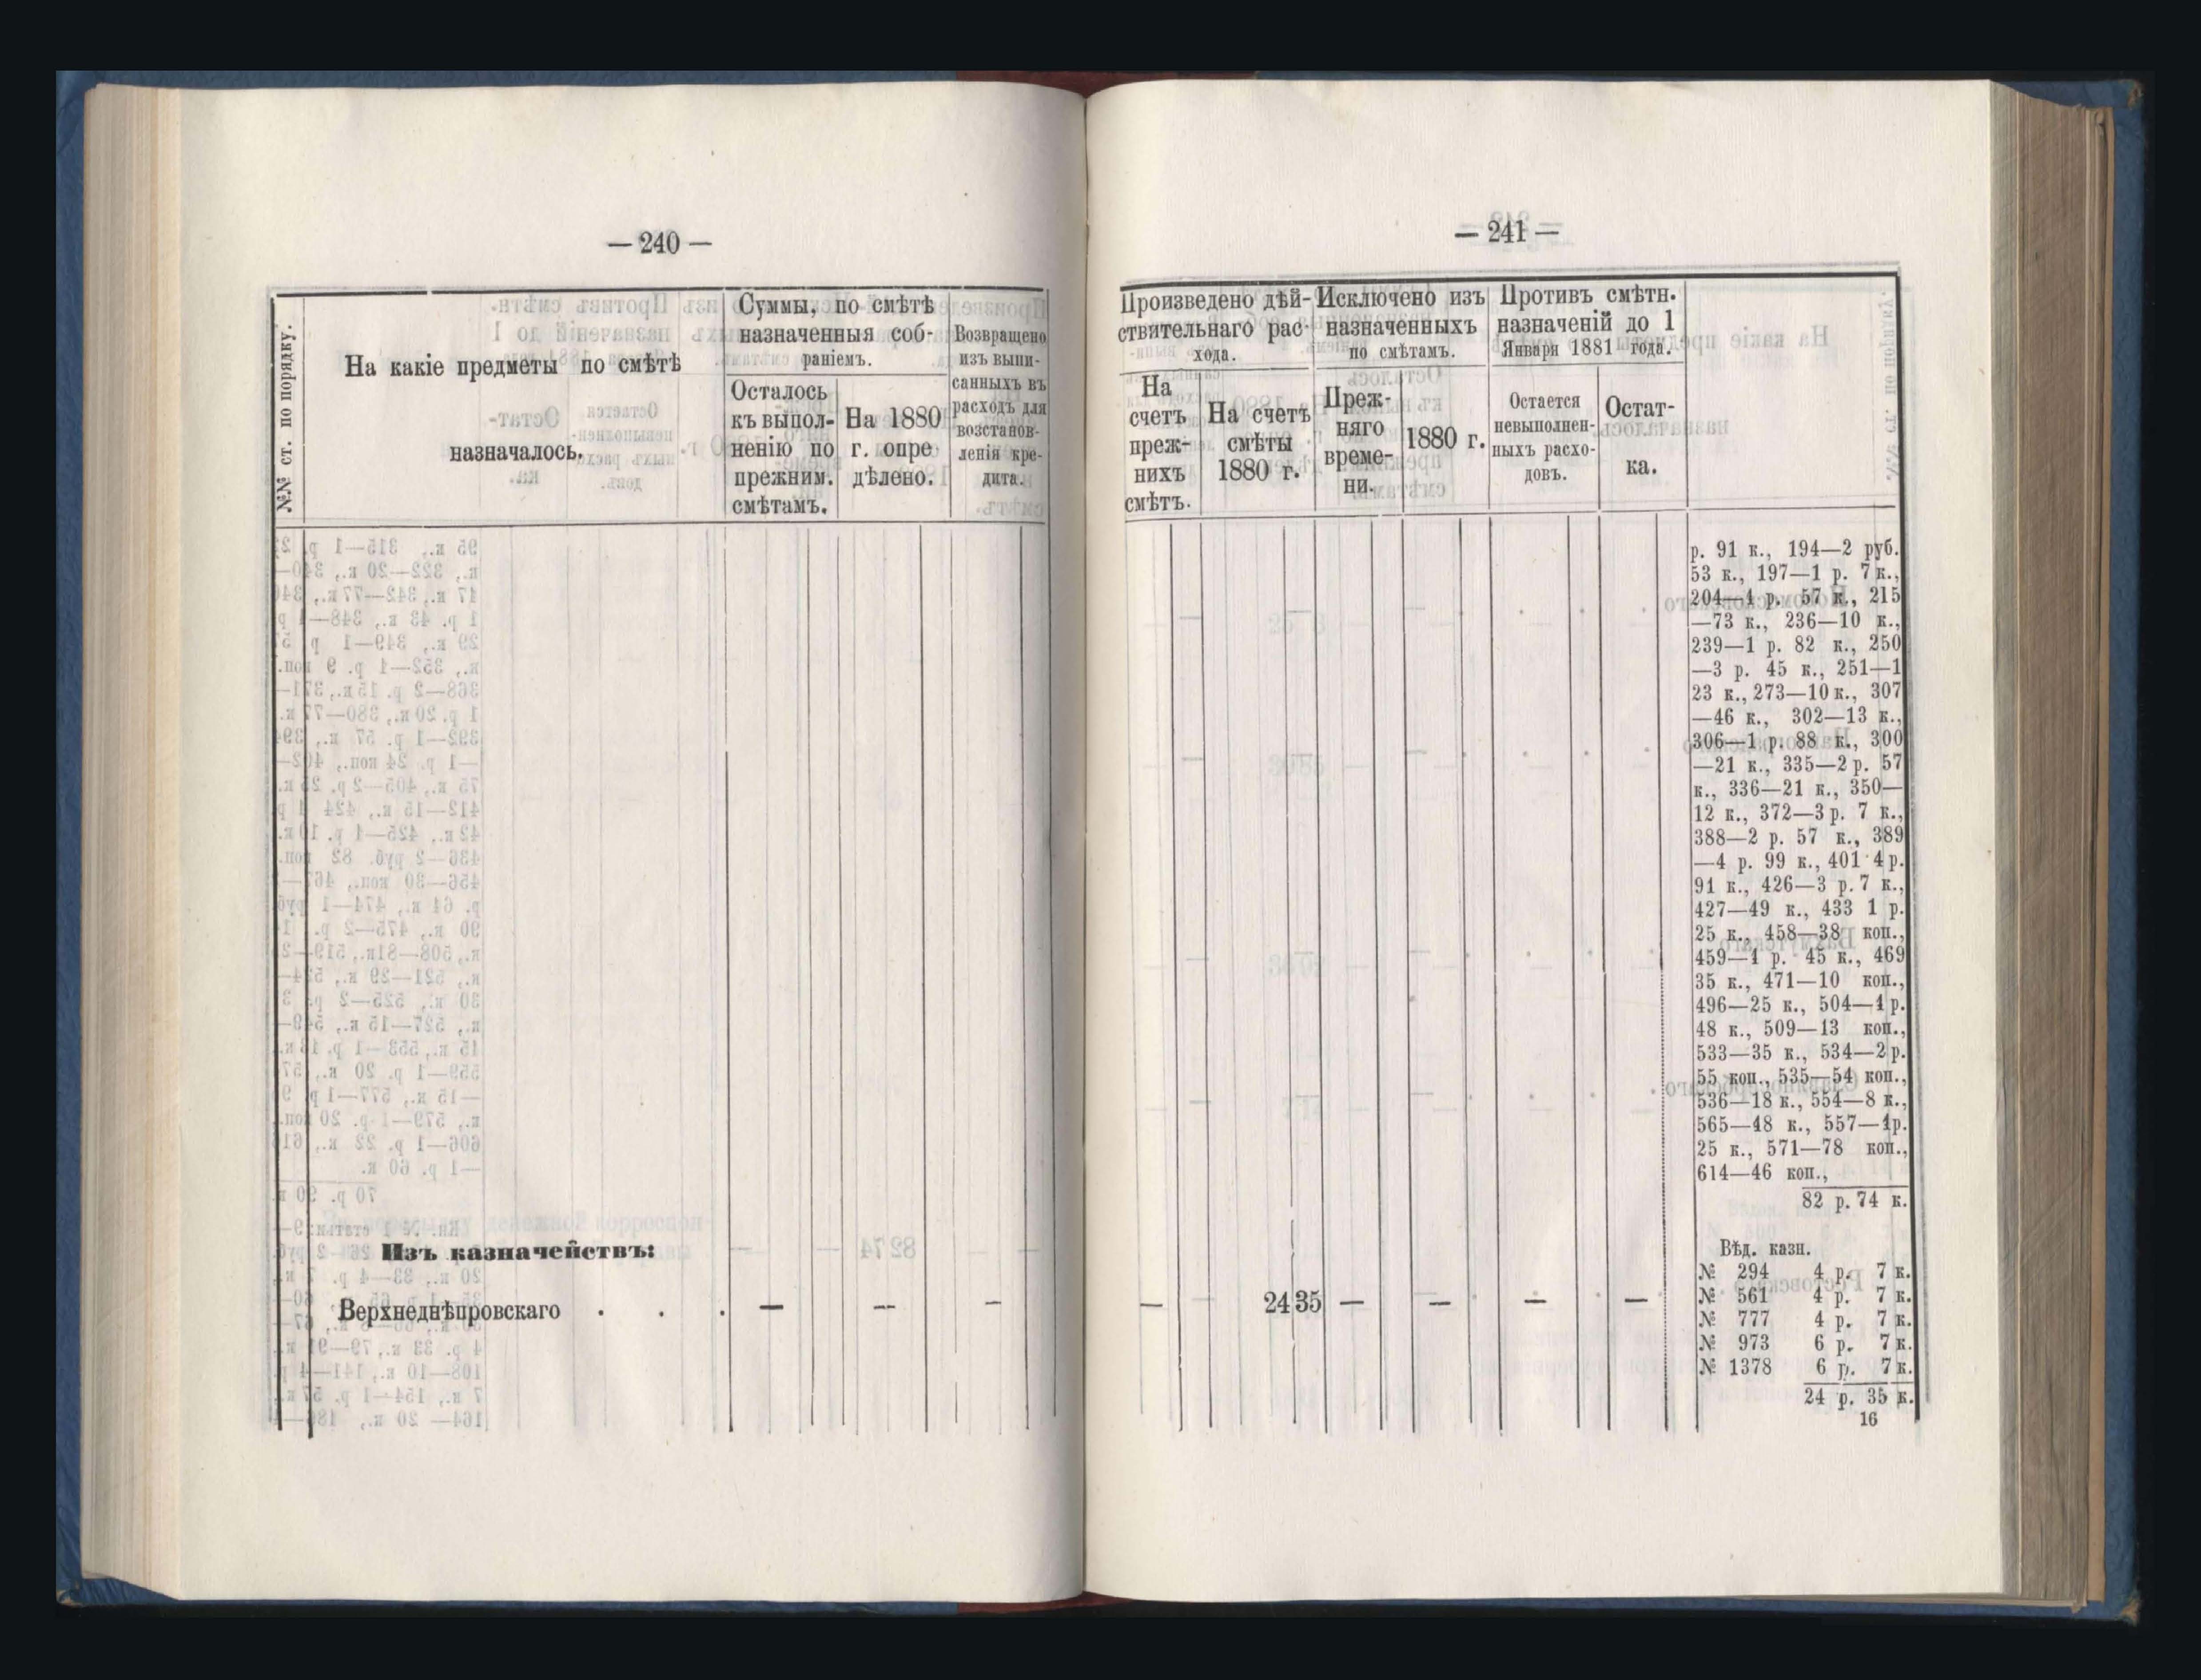 — 240 —
№№ ст. по порядку.
На какіе предметы по смѣтѣ
назначалось.
Суммы, по смѣтѣ
назначенныя соб-
раніемъ.
Осталось
къ выпол-
ненію по
прежним.
смѣтамъ.
На 1880
г. опре
дѣлено.
Возвращено
изъ выпи-
санныхъ въ
расходъ для
возстанов-
ленія кре-
дита.
Изъ казначействъ:
Верхнеднѣпровскаго . . . — — —
— 241 —
Произведено дѣй-
ствительнаго рас-
хода.
На
счетъ
преж-
нихъ
смѣтъ.
На счетъ
смѣты
1880 г.
Исключено изъ
назначенныхъ
по смѣтамъ.
Преж-
няго
време-
ни.
1880 г.
Противъ смѣтн.
назначеній до 1
Января 1881 года.
Остается
невыполнен-
ныхъ расхо-
довъ.
Остат-
ка.
р. 91 к., 194—2 руб.
53 к., 197—1 р. 7 к.,
204—4 р. 57 к., 215
—73 к., 236—10 к.,
239—1 р. 82 к., 250
—3 р. 45 к., 251—1
23 к., 273—10 к., 307
—46 к., 302—13 к.,
306—1 р. 88 к., 300
—21 к., 335—2 р. 57
к., 336—21 к., 350—
12 к., 372—3 р. 7 к.,
388—2 р. 57 к., 389
—4 р. 99 к., 401 4 р.
91 к., 426—3 р. 7 к.,
427—49 к., 433 1 р.
25 к., 458—38 коп.,
459—1 р. 45 к., 469
35 к., 471—10 коп.,
496—25 к., 504—1 р.
48 к., 509—13 коп.,
533—35 к., 534—2 р.
55 коп., 535—54 коп.,
536—18 к., 554—8 к.,
565—48 к., 557—1 р.
25 к., 571—78 коп.,
614—46 коп.,
82 р. 74 к.
Вѣд. казн.
№ 294 4 р. 7 к.
— 24 35 — — — —
№ 561 4 р. 7 к.
№ 777 4 р. 7 к.
№ 973 6 р. 7 к.
№ 1378 6 р. 7 к.
24 р. 35 к.
16